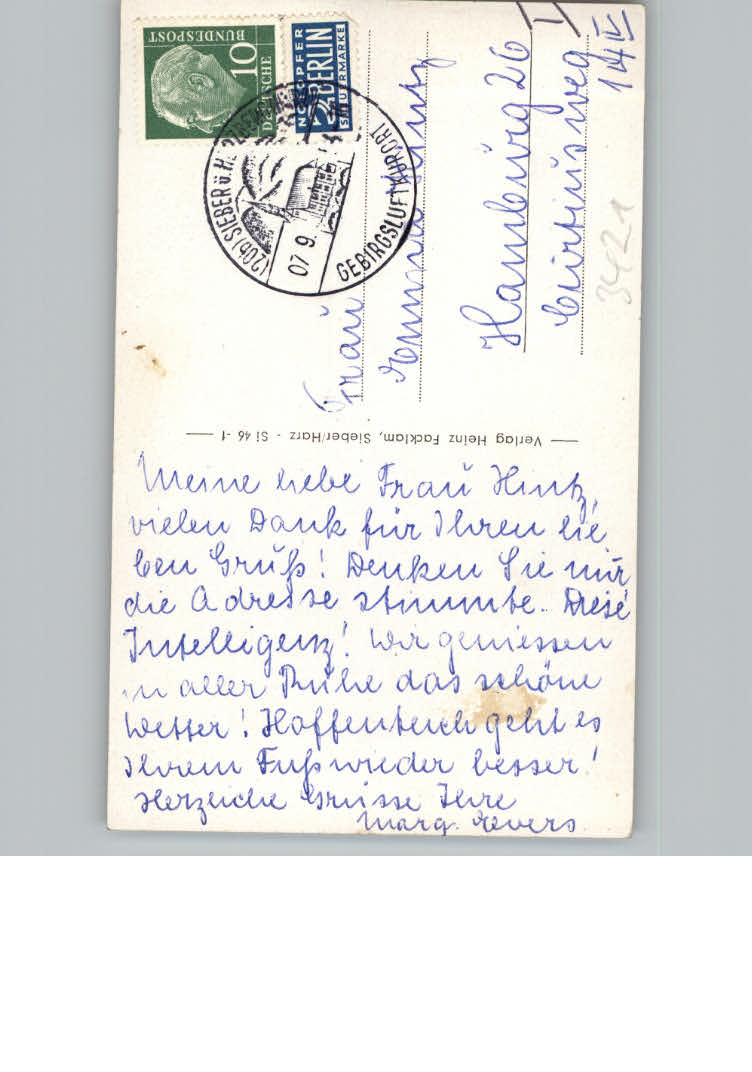 Meine liebe Frau Hintz,
vielen Dank für Ihren lie
ben Gruß! Denken Sie nur
die Adresse stimmte. Diese
Intelligenz! Wir geniessen
in aller Ruhe das schöne
Wetter! Hoffentlich geht es
Ihrem Fuß wieder besser!
Herzliche Grüsse Ihre
Marg. Evers.
Verlag Heinz Facklam, Sieber/Harz - Si 46 -f
Frau
Hintz
Hamburg 26
Curtiusweg
14 IV
3421
DEUTSCHE
BUNDESPOST
10
NOTOPFER
2 BERLIN
STEUERMARKE
(20b) SIEBER ü. HERZBERG
07 9.
GEBIRGSLUFTKURORT